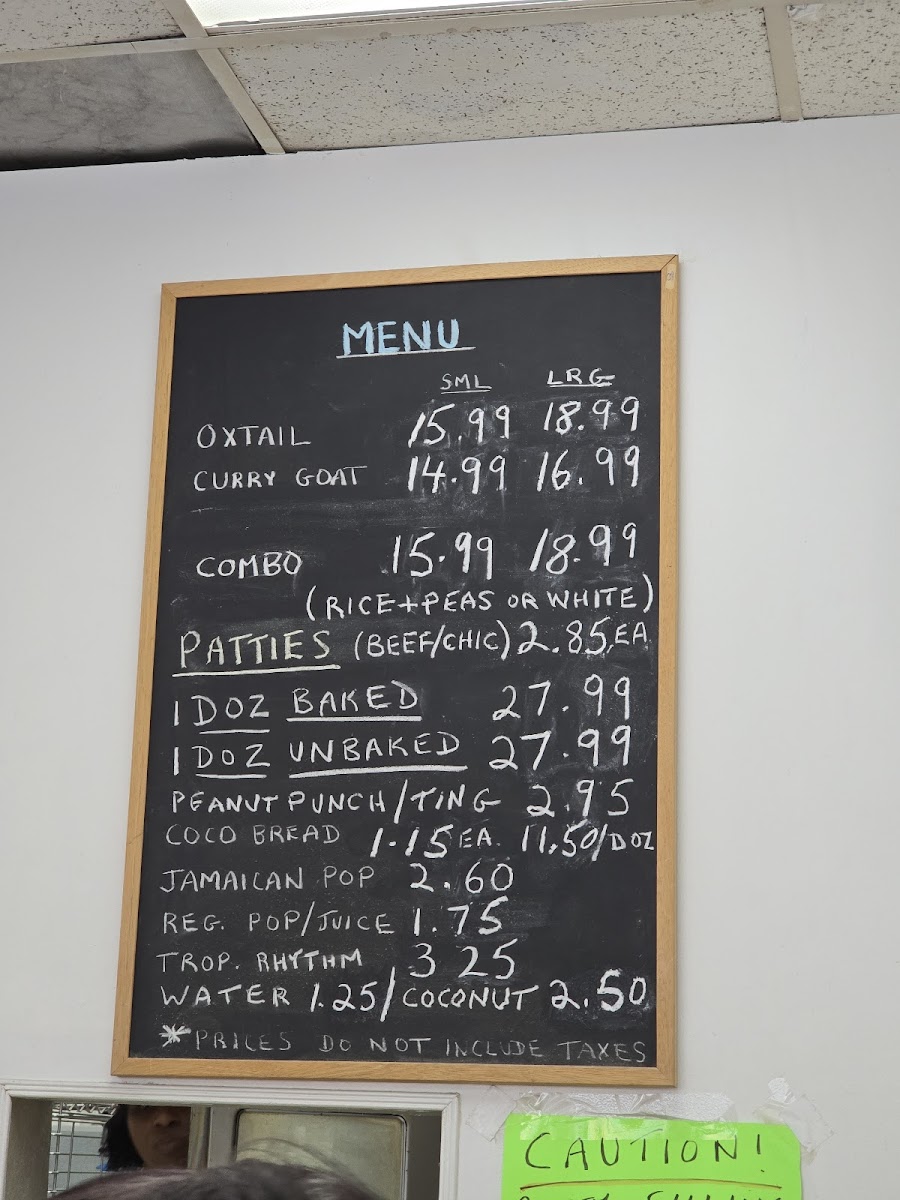 MENU
SML LRG
OXTAIL 15.99 18.99
CURRY GOAT 14.99 16.99
COMBO 15.99 18.99
(RICE+PEAS OR WHITE)
PATTIES (BEEF/CHIC) 2.85 EA.
1 DOZ BAKED 27.99
1 DOZ UNBAKED 27.99
PEANUT PUNCH/TING 2.95
COCO BREAD 1.15 EA. 11.50/DOZ
JAMAICAN POP 2.60
REG. POP/JUICE 1.75
TROP. RHYTHM 3 25
WATER 1.25/COCONUT 2.50
*PRICES DO NOT INCLUDE TAXES
CAUTION!